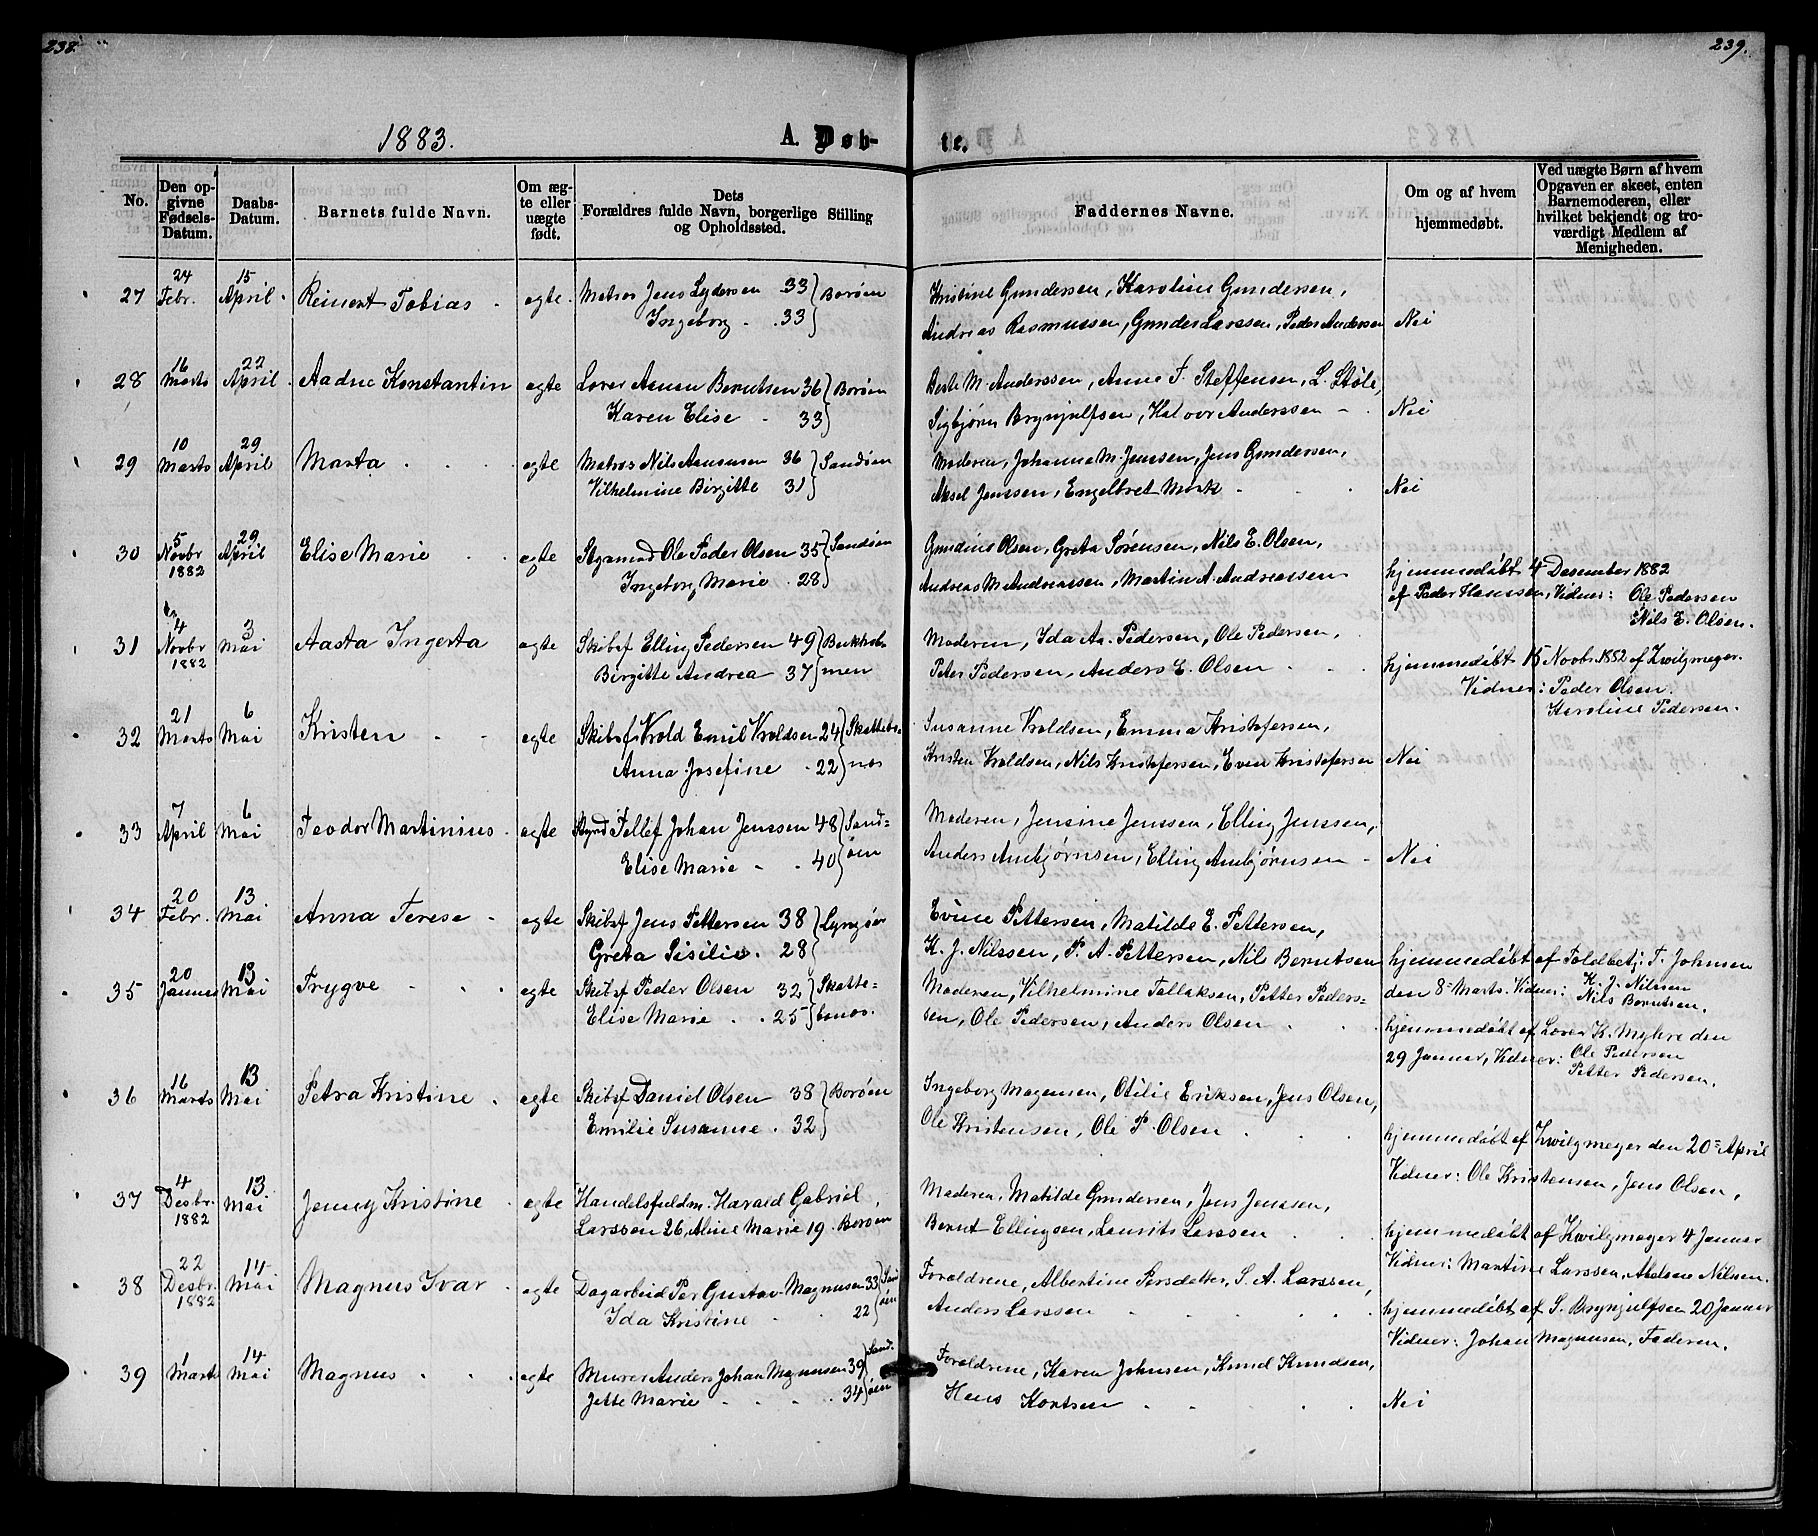 238.
239.
1883.
A. Døb-
te.
No.
Den op-
givne
Fødsels-
Datum.
Daabs-
Datum.
Barnets fulde Navn.
Om æg-
te eller
uægte
født.
Dets
Forældres fulde Navn, borgerlige Stilling
og Opholdssted.
Faddernes Navne.
Om og af hvem
hjemmedøbt.
Ved uægte Børn af hvem
Opgaven er skeet, enten
Barnemoderen, eller
hvilket bekjendt og tro-
værdigt Medlem af
Menigheden.
27 24 Febr. 15 April. Reinert Tobias. ægte. Matros Jens Lydersen 33 Borøen
Ingeborg. 33
Kristine Gundersen, Karoline Gundersen,
Andreas Rasmussen, Gunder Larssen, Peder Andersen Nei
28 16 Marts 22 April. Aadne Konstantin ægte Lover Aanen Berntsen 36 Borøen
Karen Elise 33
Berte M. Anderssen, Anne F. Steffensen, L. Støle,
Sigbjørn Brynjulfsen, Halvor Anderssen Nei
29 10 Marts 29 April Marta ægte Matros Nils Aanonsen 36 Sandøen
Vilhelmine Birgitte 31
Moderen, Johanne M. Jenssen, Jens Gundersen,
Aksel Jenssen, Engelbret Mørk Nei
30 5 Novbr 1882 29 April Elise Marie ægte Ole Peder Olsen 35 Sandøen
Ingeborg Marie 28
Gundius Olsen, Greta Sørensen, Nils E. Olsen,
Andreas M. Andreassen, Martin A. Andreassen
hjemmedøbt 4 Desember 1882
af Peder Hanssen, Vidner: Ole Pedersen
Nils E. Olsen.
31 4 Novbr 1882 3 Mai Aasta Ingerta ægte Skibsf Elling Pedersen 49
Birgitte Andrea 37 men
Moderen, Ida Aa. Pedersen, Ole Pedersen,
Peter Pedersen, Anders E. Olsen
hjemmedøbt 15 Novbr. 1882 af Zwilgmeyer.
Vidner: Peder Olsen.
Karoline Pedersen.
32 21 Marts 6 Mai Kristen ægte Skibsf Vrold Emil Vroldsen 24 Skattebo-
Anna Josefine 22 næs
Susanne Vroldsen, Emma Kristofersen,
Kristen Vroldsen, Nils Kristofersen, Even Kristofersen Nei
33 7 April 6 Mai Teodor Martinius. ægte Tellef Johan Jenssen 48 Sand-
Elise Marie 40 øen
Moderen, Jensine Jenssen, Elling Jenssen,
Anders Ambjørnsen, Elling Ambjørnsen Nei
34 20 Febr. 13 Mai Anna Terese ægte Skibsf Jens Pettersen 38 Lyngør
Greta Sisilie. 28
Evine Pettersen, Matilde E. Pettersen,
K. J. Nilssen, P. A. Pettersen, Nils Berntsen
hjemmedøbt af Toldbetj. T. Johnsen
den 8de Marts. Vidner: K. J. Nilssen
Nils Berntsen.
35 20 Januar 13 Mai Trygve ægte Skibsf Peder Olsen 32 Skatte-
Elise Marie 25 bonæs.
Moderen, Vilhelmine Tallaksen, Petter Peders-
sen, Ole Pedersen, Anders Olsen
hjemmedøbt af Lærer K. Myhre den
29 Januar, Vidner: Ole Pedersen
Petter Pedersen.
36 16 Marts 13 Mai Petra Kristine. ægte Skibsf Daniel Olsen 38 Borøen
Emilie Susanne. 32
Ingeborg Mogensen, Otilie Eriksen, Jens Olsen,
Ole Kristensen, Ole P. Olsen
hjemmedøbt af Zwilgmeyer den 20de April
Vidner: Ole Kristensen, Jens Olsen,
37 4 Desbr. 1882 13 Mai Jenny Kristine ægte Handelsfuldm. Harald Gabriel
Larssen 26, Aline Marie 19. Borøen
Moderen, Matilde Gundersen, Jens Jenssen,
Bernt Ellingsen, Laurits Larssen
hjemmedøbt af Zwilgmeyer 4 Januar
Vidner: Martine Larssen, Nilsen.
38 22 Desbr. 1882 14 Mai Magnus Ivar ægte Dagarbeid Per Gustav Magnusen 33 Sand
Ida Kristine 22 øen
Forældrene, Albertine Persdatter, S. A. Larssen,
Anders Larssen
hjemmedøbt af S. Brynjulfsen 20 Januar
Vidner: Johan Magnusen, Faderen.
39 1 Marts 14 Mai Magnus ægte Murer Anders Johan Magnusen 39 Sand-
Jette Marie 34 øen
Forældrene, Karen Johnsen, Knud Knudsen,
Hans Kortsen Nei